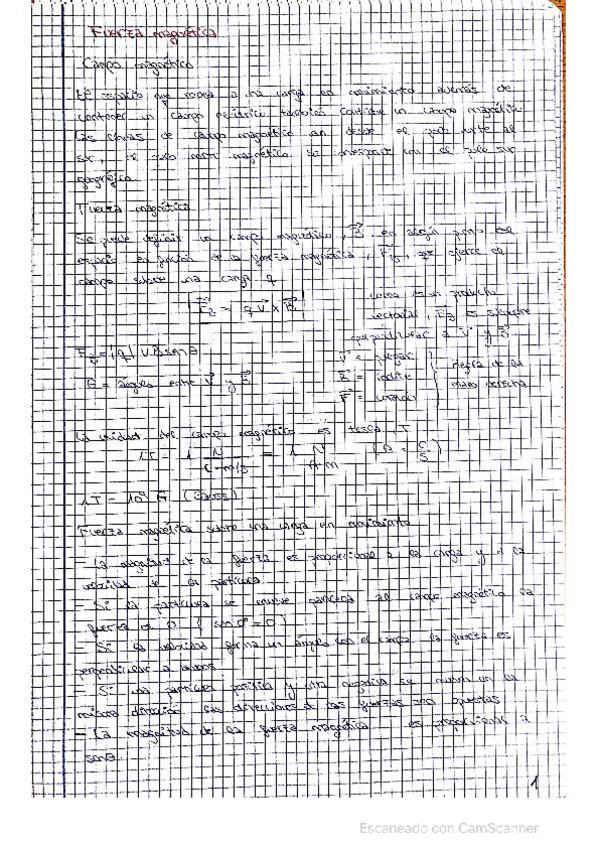 Fuerza magnética
Campo magnético
El espacio que rodea a una carga en movimiento además de
contener un campo eléctrico también contiene un campo magnético
Las líneas de campo magnético van desde el polo norte al
sur, el polo norte magnético se corresponde con el polo sur
geográfico.
Fuerza magnética
Se puede definir un campo magnético B en algún punto del
espacio en función de la fuerza magnética, F_B, que ejerce el
campo sobre una carga q
F_B = q V x B
como es un producto
vectorial, F_B es siempre
perpendicular a V y B
F_B = |q| V B senθ
θ = ángulo entre V y B
V = pulgar
B = índice
F = corazón
Regla de la
mano derecha
La unidad del campo magnético es tesla, T
1T = 1 N / C·m/s = 1 N / A·m (A = C/S)
1T = 10⁴ G (Gauss)
Fuerza magnética sobre una carga en movimiento
- La magnitud de la fuerza es proporcional a la carga y a la
velocidad de la partícula.
- Si la partícula se mueve paralela al campo magnético la
fuerza es 0 (sen 0° = 0)
- Si la velocidad forma un ángulo con el campo la fuerza es
perpendicular a ambos.
- Si una partícula positiva y otra negativa se mueven en la
misma dirección las direcciones de las fuerzas son opuestas
- La magnitud de la fuerza magnética es proporcional a
senθ.
1
Escaneado con CamScanner